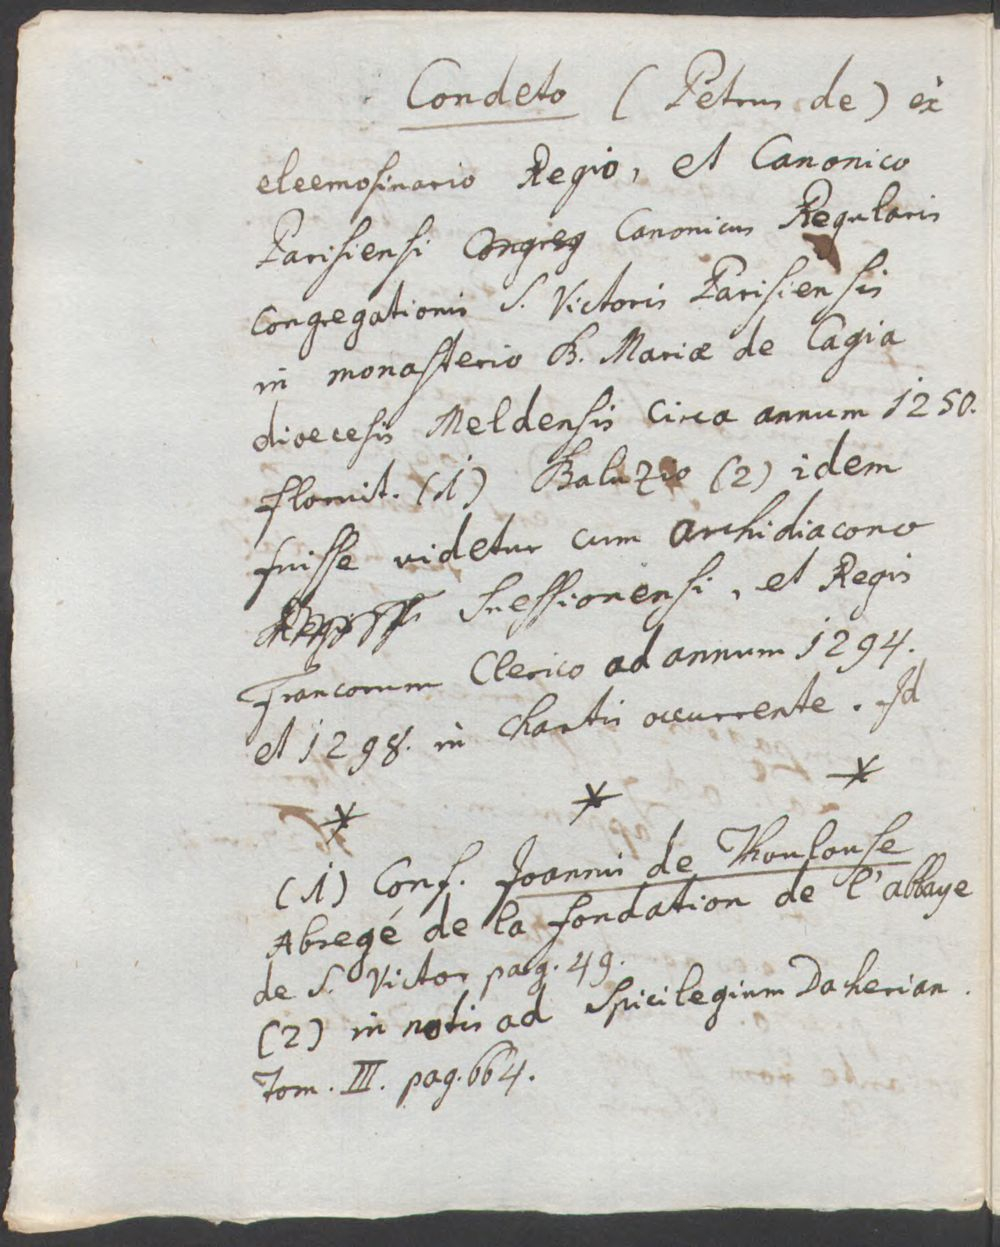 Condeto (Petrus de) ex
eleemosinario Regio, et Canonico
Parisiensi Congreg Canonicus Regularis
Congregationis S. Victoris Parisiensis
in monasterio B. Mariæ de Cagia
dioecesis Meldensis circa annum 1250.
floruit. (1) Baluzio (2) idem
fuisse videtur cum archidiacono
Suessionensi, et Regis
Francorum Clerico ad annum 1294.
et 1298. in chartis occurrente. Id
* * *
(1) Conf. Joannis de Thoulouse
Abregé de la fondation de l'abbaye
de S. Victor pag. 49.
(2) in notis ad Spicilegium Dacherian.
Tom. III. pag. 664.